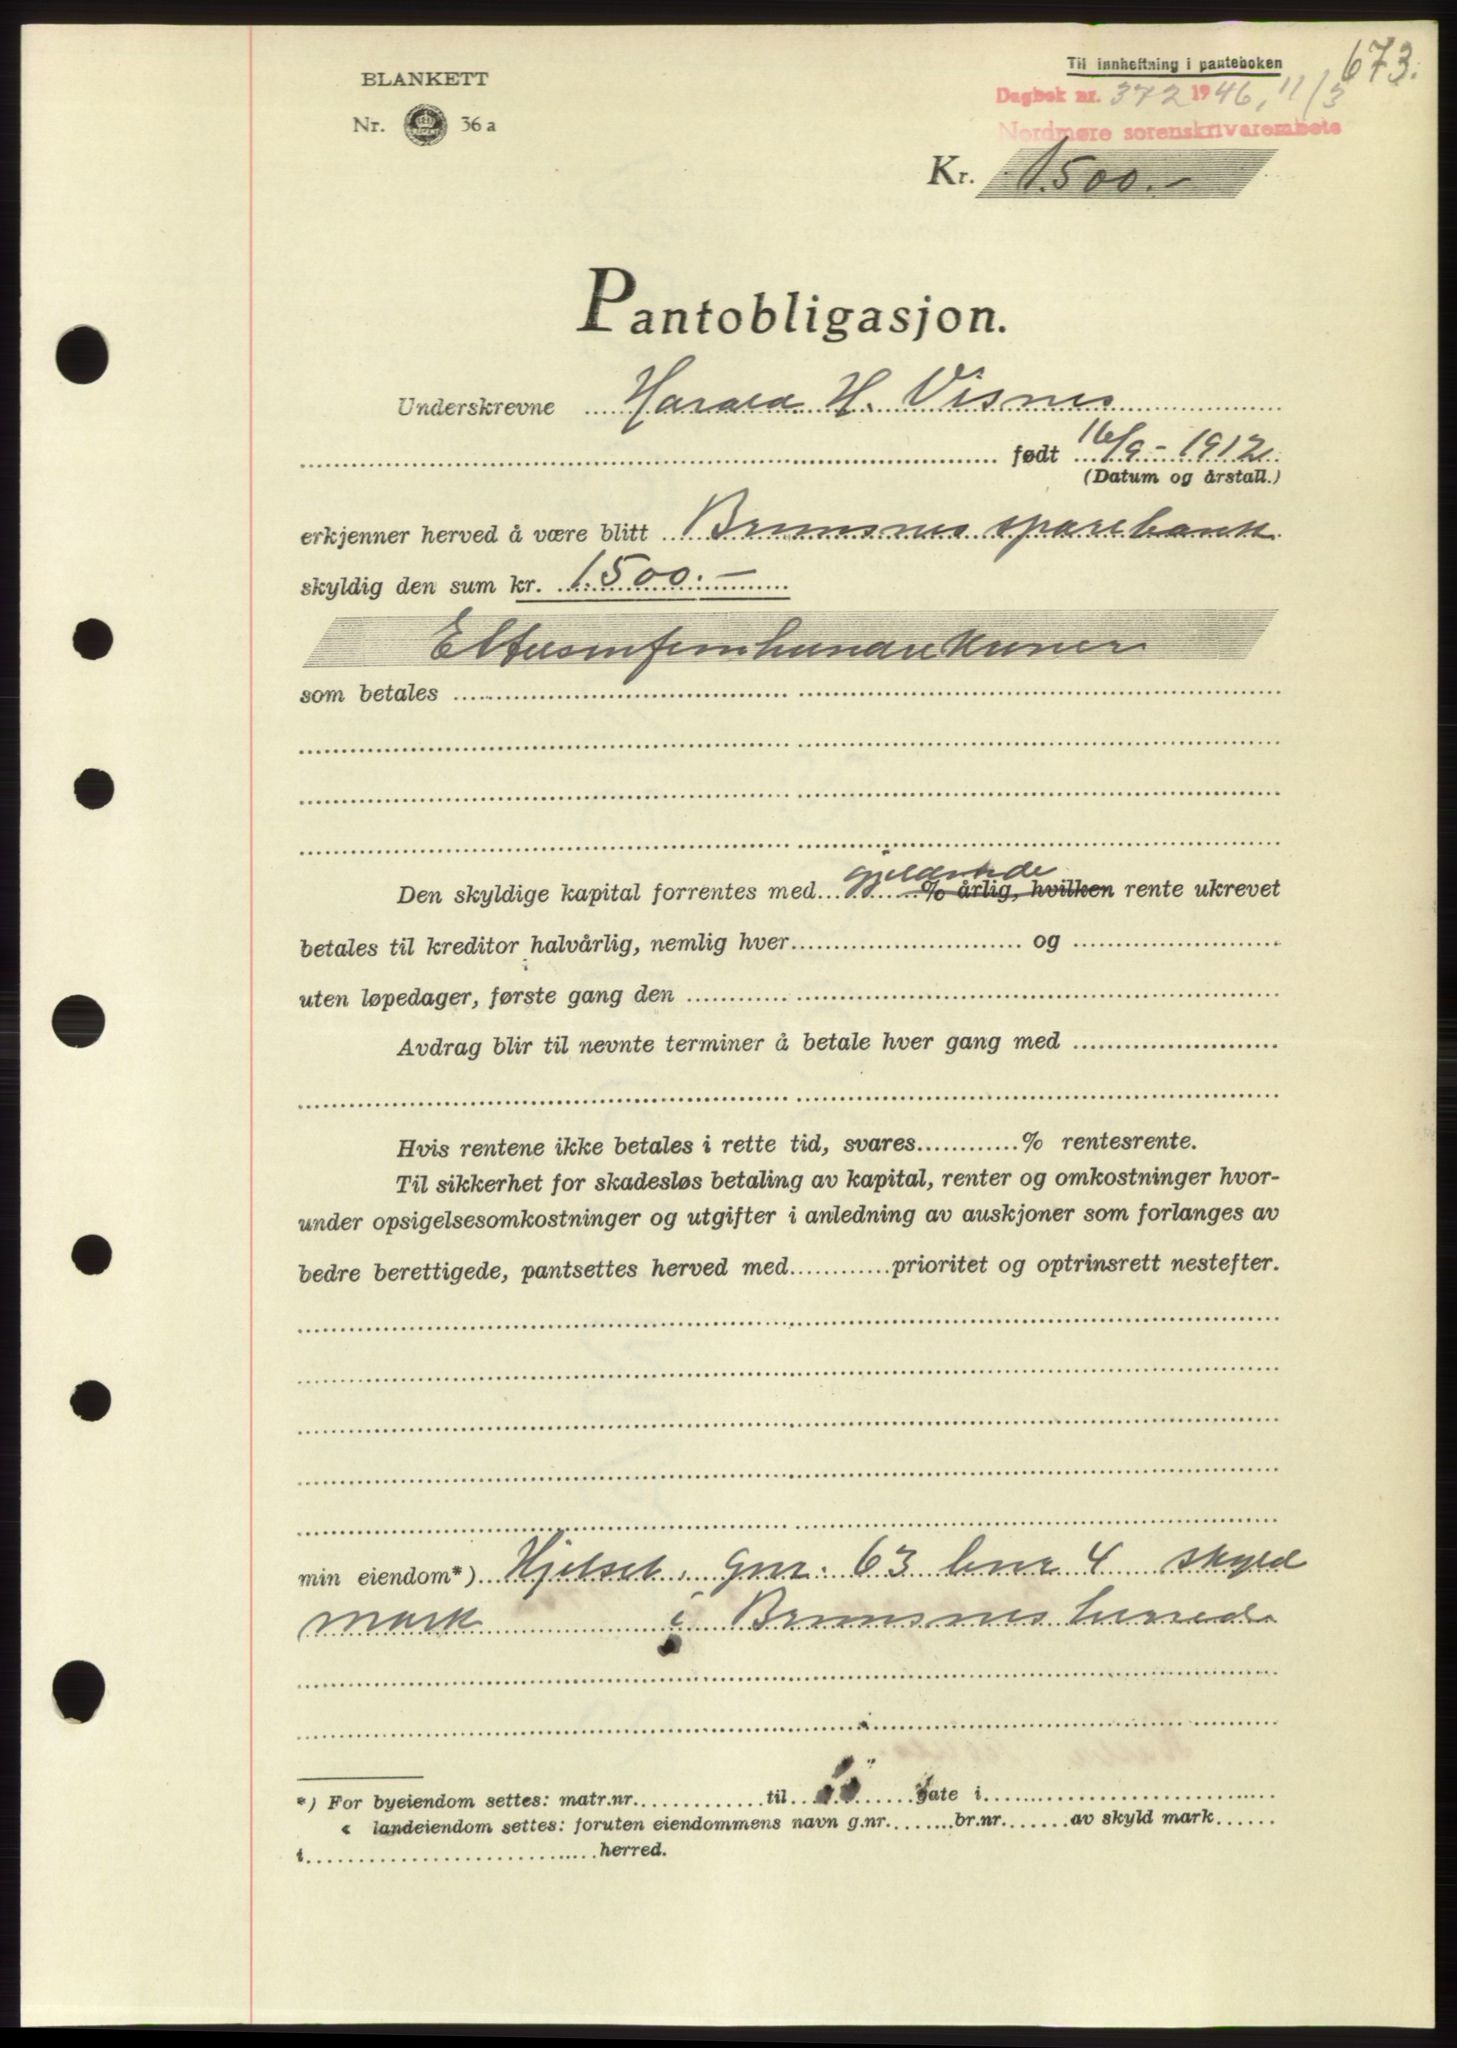 673.
Til innheftning i panteboken
BLANKETT
Dagbok nr. 372 1946, 11/3
Nr. 36 a
Nordmøre sorenskrivarembete
Kr. 1500.-
Pantobligasjon.
Underskrevne Harald H. Visnes
født 16/9 - 1912
(Datum og årstall.)
erkjenner herved å være blitt Bremsnes sparebank
skyldig den sum kr. 1500.-
Ettusenfemhundre kroner
som betales
gjeldende
Den skyldige kapital forrentes med % årlig, hvilken rente ukrevet
betales til kreditor halvårlig, nemlig hver og
uten løpedager, første gang den
Avdrag blir til nevnte terminer å betale hver gang med
Hvis rentene ikke betales i rette tid, svares % rentesrente.
Til sikkerhet for skadesløs betaling av kapital, renter og omkostninger hvor-
under opsigelsesomkostninger og utgifter i anledning av auskjoner som forlanges av
bedre berettigede, pantsettes herved med prioritet og optrinsrett nestefter.
min eiendom*) Hjelset, gnr. 63 bnr 4 skyld
mark i Bremsnes herred.
*) For byeiendom settes: matr.nr. til gate i
« landeiendom settes: foruten eiendommens navn g.nr. br.nr. av skyld mark
i herred.